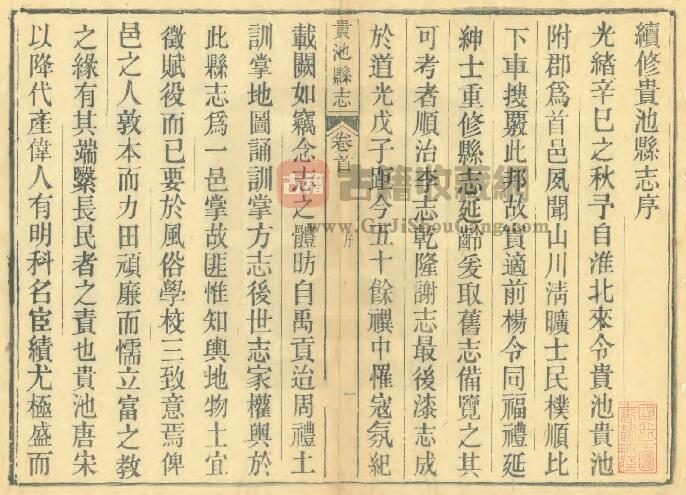 續修貴池縣志序
光緒辛巳之秋予自淮北來令貴池貴池
附郡為首邑夙聞山川清曠士民樸順比
下車搜覈此邦故實適前楊令同福禮延
紳士重修縣志延齡爰取舊志備覽之其
可考者順治李志乾隆謝志最後漆志成
於道光戊子距今五十餘禩中罹寇氛紀
貴池縣志 卷首 序 一
載闕如竊念志之體昉自禹貢迨周禮土
訓掌地圖誦訓掌方志後世志家權輿於
此縣志為一邑掌故匪惟知輿地物土宜
徵賦役而已要於風俗學校三致意焉俾
邑之人敦本而力田頑廉而懦立富之教
之緣有其端繄長民者之責也貴池唐宋
以降代產偉人有明科名宦績尤極盛而
古籍收藏網
www.GuJiShouCang.com